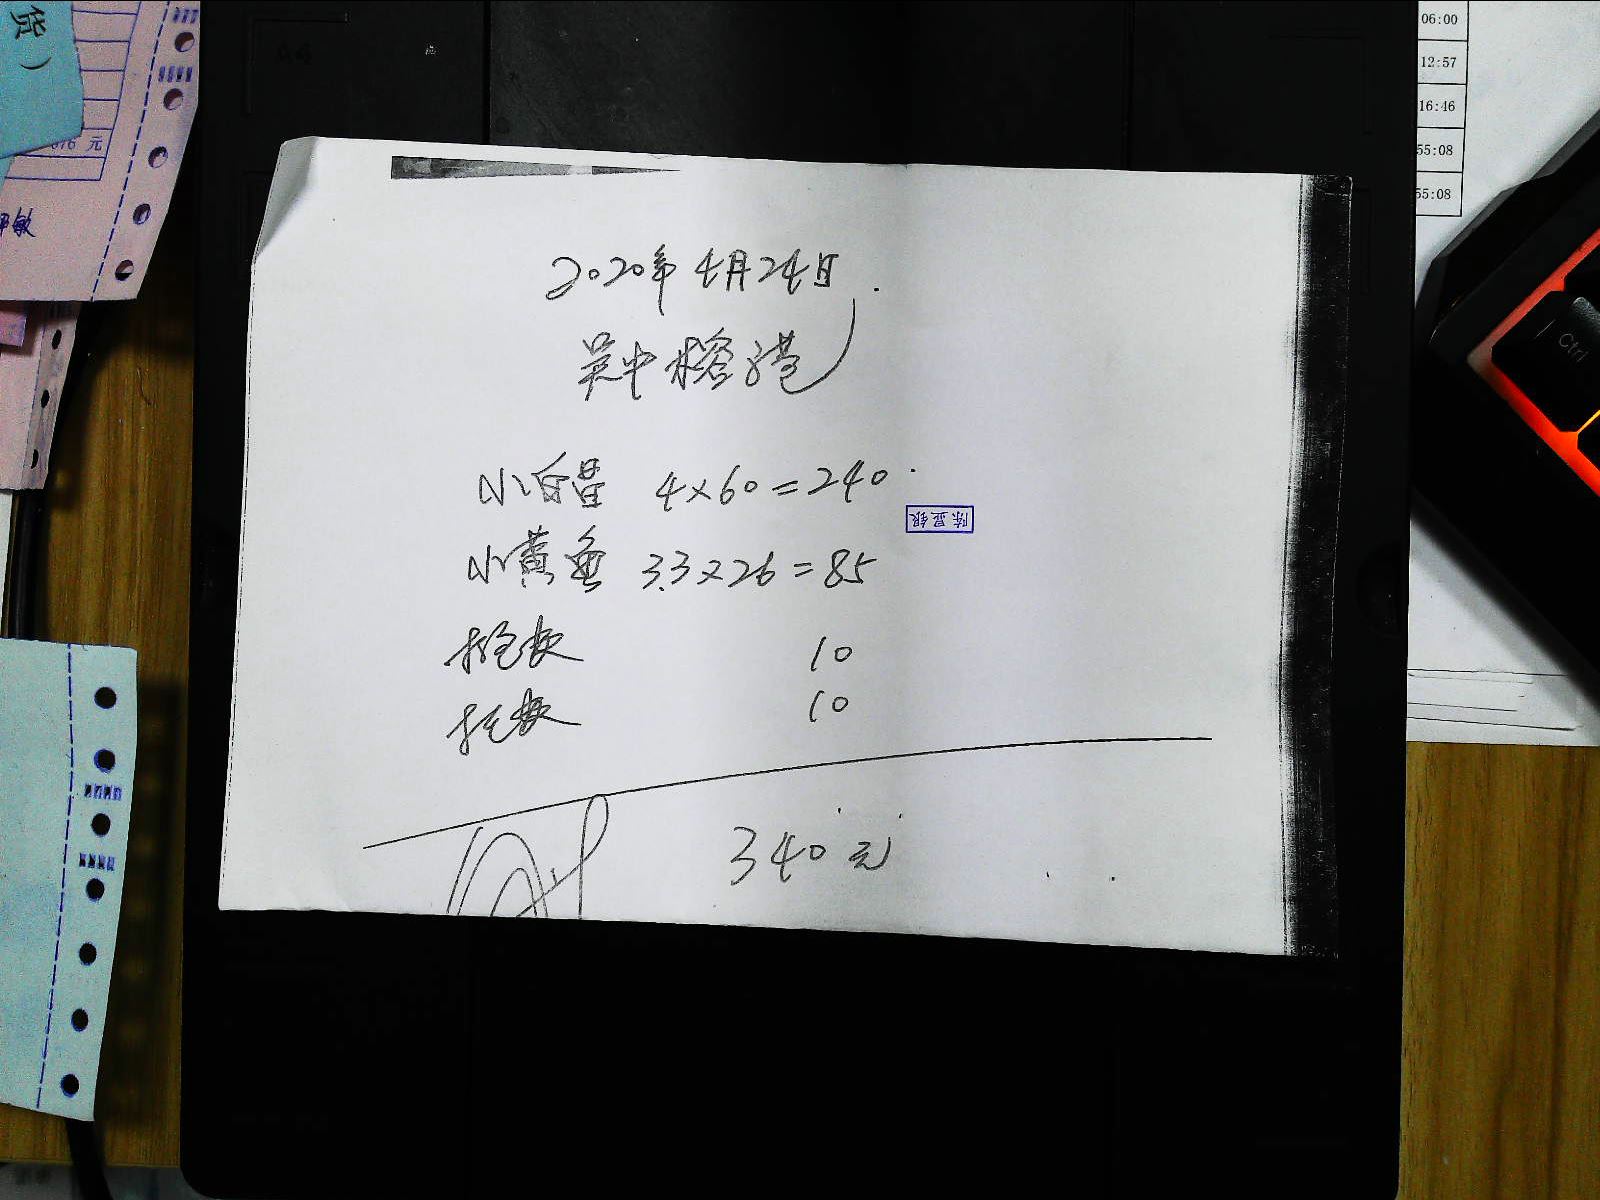 货）
元
敏
06:00
12:57
16:46
55:08
55:08
Ctrl
2020年4月24日
吴中榕港
小白鲳 4×60=240
陈显银
小黄鱼 3.3×26=85
10
10
340元